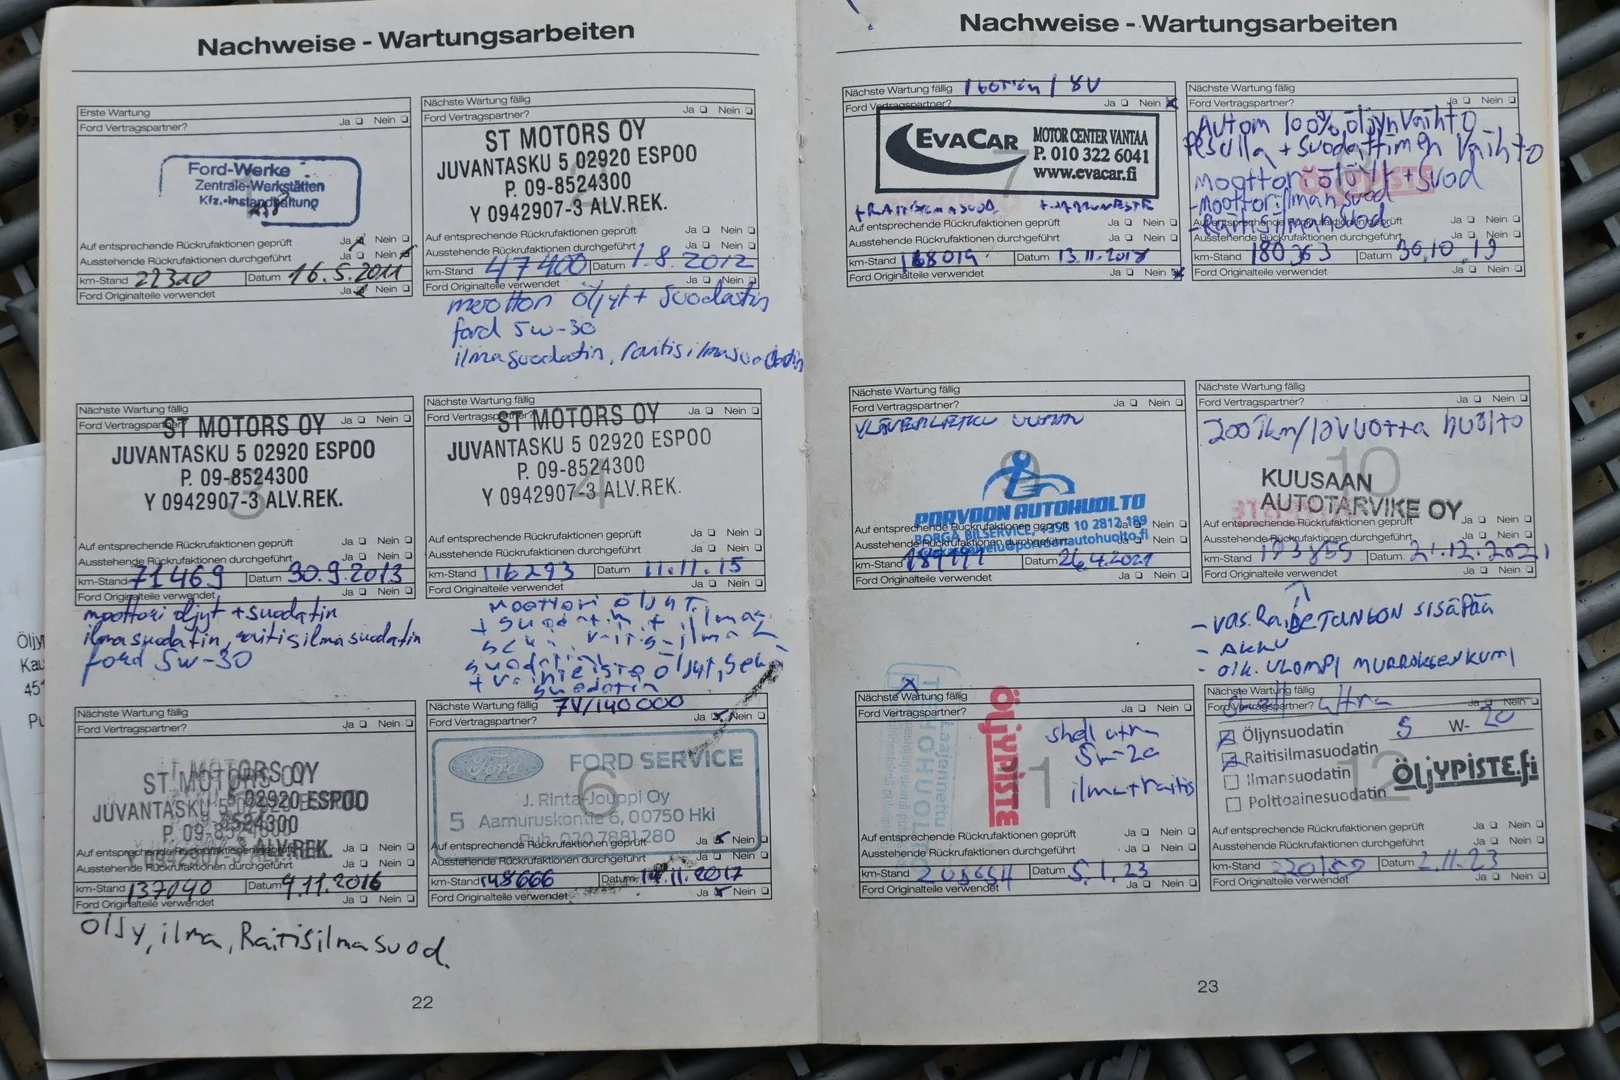 Nachweise - Wartungsarbeiten
Erste Wartung
Ford Vertragspartner?
Ja Nein
Ford-Werke
Zentrale-Werkstätten
Kfz.-Instandhaltung
Auf entsprechende Rückrufaktionen geprüft Ja Nein
Ausstehende Rückrufaktionen durchgeführt Ja Nein
km-Stand 22310 Datum 16.5.2011
Ford Originalteile verwendet Ja Nein
Nächste Wartung fällig
Ford Vertragspartner? Ja Nein
ST MOTORS OY
JUVANTASKU 5 02920 ESPOO
P. 09-8524300
Y 0942907-3 ALV.REK.
Auf entsprechende Rückrufaktionen geprüft Ja Nein
Ausstehende Rückrufaktionen durchgeführt Ja Nein
km-Stand 47400 Datum 1.8.2012
Ford Originalteile verwendet Ja Nein
moottori öljyt + suodatin
ford 5w-30
ilmasuodatin, raitisilmasuodatin
Nächste Wartung fällig
Ford Vertragspartner? Ja Nein
ST MOTORS OY
JUVANTASKU 5 02920 ESPOO
P. 09-8524300
Y 0942907-3 ALV.REK.
3
Auf entsprechende Rückrufaktionen geprüft Ja Nein
Ausstehende Rückrufaktionen durchgeführt Ja Nein
km-Stand 71469 Datum 30.9.2013
Ford Originalteile verwendet Ja Nein
moottori öljyt + suodatin
ilmasuodatin, raitisilmasuodatin
ford 5w-30
Nächste Wartung fällig
Ford Vertragspartner? Ja Nein
ST MOTORS OY
JUVANTASKU 5 02920 ESPOO
P. 09-8524300
Y 0942907-3 ALV.REK.
4
Auf entsprechende Rückrufaktionen geprüft Ja Nein
Ausstehende Rückrufaktionen durchgeführt Ja Nein
km-Stand 116293 Datum 11.11.15
Ford Originalteile verwendet Ja Nein
moottori öljyt
+ suodatin + ilmas
suodatin
+ vaihteisto öljyt, sekä
suodatin
Nächste Wartung fällig
Ford Vertragspartner? Ja Nein
ST MOTORS OY
JUVANTASKU 5 02920 ESPOO
P. 09-8524300
Y 0942907-3 ALV.REK.
Auf entsprechende Rückrufaktionen geprüft Ja Nein
Ausstehende Rückrufaktionen durchgeführt Ja Nein
km-Stand 137040 Datum 9.11.2016
Ford Originalteile verwendet Ja Nein
öljy, ilma, Raitisilmasuod.
Nächste Wartung fällig 7V/140000
Ford Vertragspartner? Ja Nein
Ford
FORD SERVICE
6
J. Rinta-Jouppi Oy
5 Aamuruskontie 6, 00750 Hki
Puh. 020 7881 280
Auf entsprechende Rückrufaktionen geprüft Ja Nein
Ausstehende Rückrufaktionen durchgeführt Ja Nein
km-Stand 148666 Datum 11.2017
Ford Originalteile verwendet Ja Nein
22
Nachweise - Wartungsarbeiten
Nächste Wartung fällig 160Tkm / 8V
Ford Vertragspartner? Ja Nein
7
EVACAR
MOTOR CENTER VANTAA
P. 010 322 6041
www.evacar.fi
+RAITISILMASUOD. +JARRUNESTE
Auf entsprechende Rückrufaktionen geprüft Ja Nein
Ausstehende Rückrufaktionen durchgeführt Ja Nein
km-Stand 168019 Datum 13.11.2018
Ford Originalteile verwendet Ja Nein
Nächste Wartung fällig
Ford Vertragspartner? Ja Nein
Autom 100% öljynvaihto
Pesulla + suodattimen vaihto
moottoriöljyt + suod
- moottoriilmansuod
- Raitisilmansuod
Ausstehende Rückrufaktionen durchgeführt Ja Nein
km-Stand 180363 Datum 30.10.19
Ford Originalteile verwendet Ja Nein
Nächste Wartung fällig
Ford Vertragspartner? Ja Nein
9
PORVOON AUTOHUOLTO
BORGÅ BILSERVICE, +358 10 2812 189
Auf entsprechende Rückrufaktionen geprüft Ja Nein
Ausstehende Rückrufaktionen durchgeführt Ja Nein
km-Stand Datum 26.4.2021
Ford Originalteile verwendet Ja Nein
Nächste Wartung fällig
Ford Vertragspartner? Ja Nein
200tkm/10vuotta huolto
10
KUUSAAN
AUTOTARVIKE OY
Auf entsprechende Rückrufaktionen geprüft Ja Nein
Ausstehende Rückrufaktionen durchgeführt Ja Nein
km-Stand Datum 21.12.2021
Ford Originalteile verwendet Ja Nein
- VAS. RAIDETANGON SISÄPÄÄ
- AKKU
- OIK. ULOMPI MURROKSENKUMI
Nächste Wartung fällig
Ford Vertragspartner? Ja Nein
ÖLJYPISTE
11
shell ultra
5w-20
ilma+raitis
Auf entsprechende Rückrufaktionen geprüft Ja Nein
Ausstehende Rückrufaktionen durchgeführt Ja Nein
km-Stand Datum 5.1.23
Ford Originalteile verwendet Ja Nein
Nächste Wartung fällig
Ford Vertragspartner? Ja Nein
Shell ultra
Öljynsuodatin 5 W- 20
Raitisilmasuodatin
Ilmansuodatin
Polttoainesuodatin
12
ÖLJYPISTE.fi
Auf entsprechende Rückrufaktionen geprüft Ja Nein
Ausstehende Rückrufaktionen durchgeführt Ja Nein
km-Stand Datum 2.11.23
Ford Originalteile verwendet Ja Nein
23